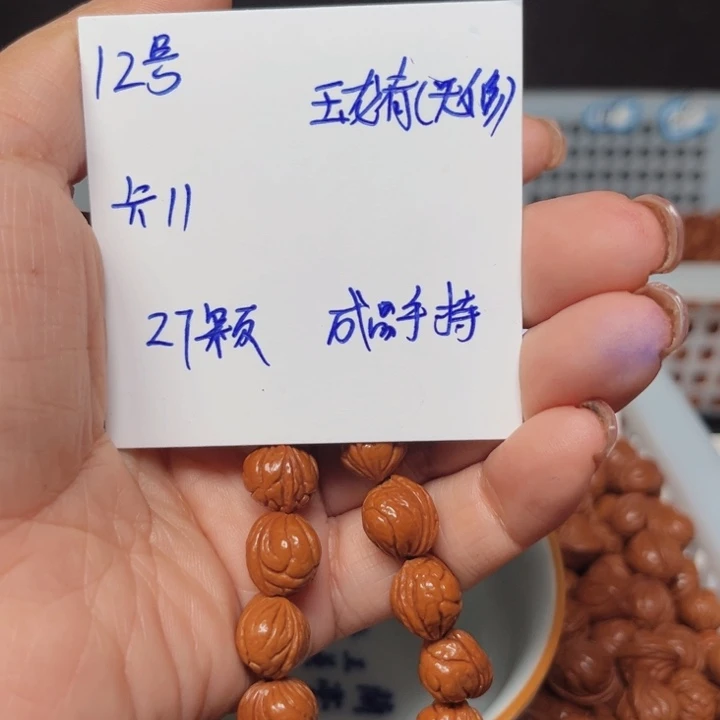 12号
王龙膏(无修)
卡11
27颗 成品手持